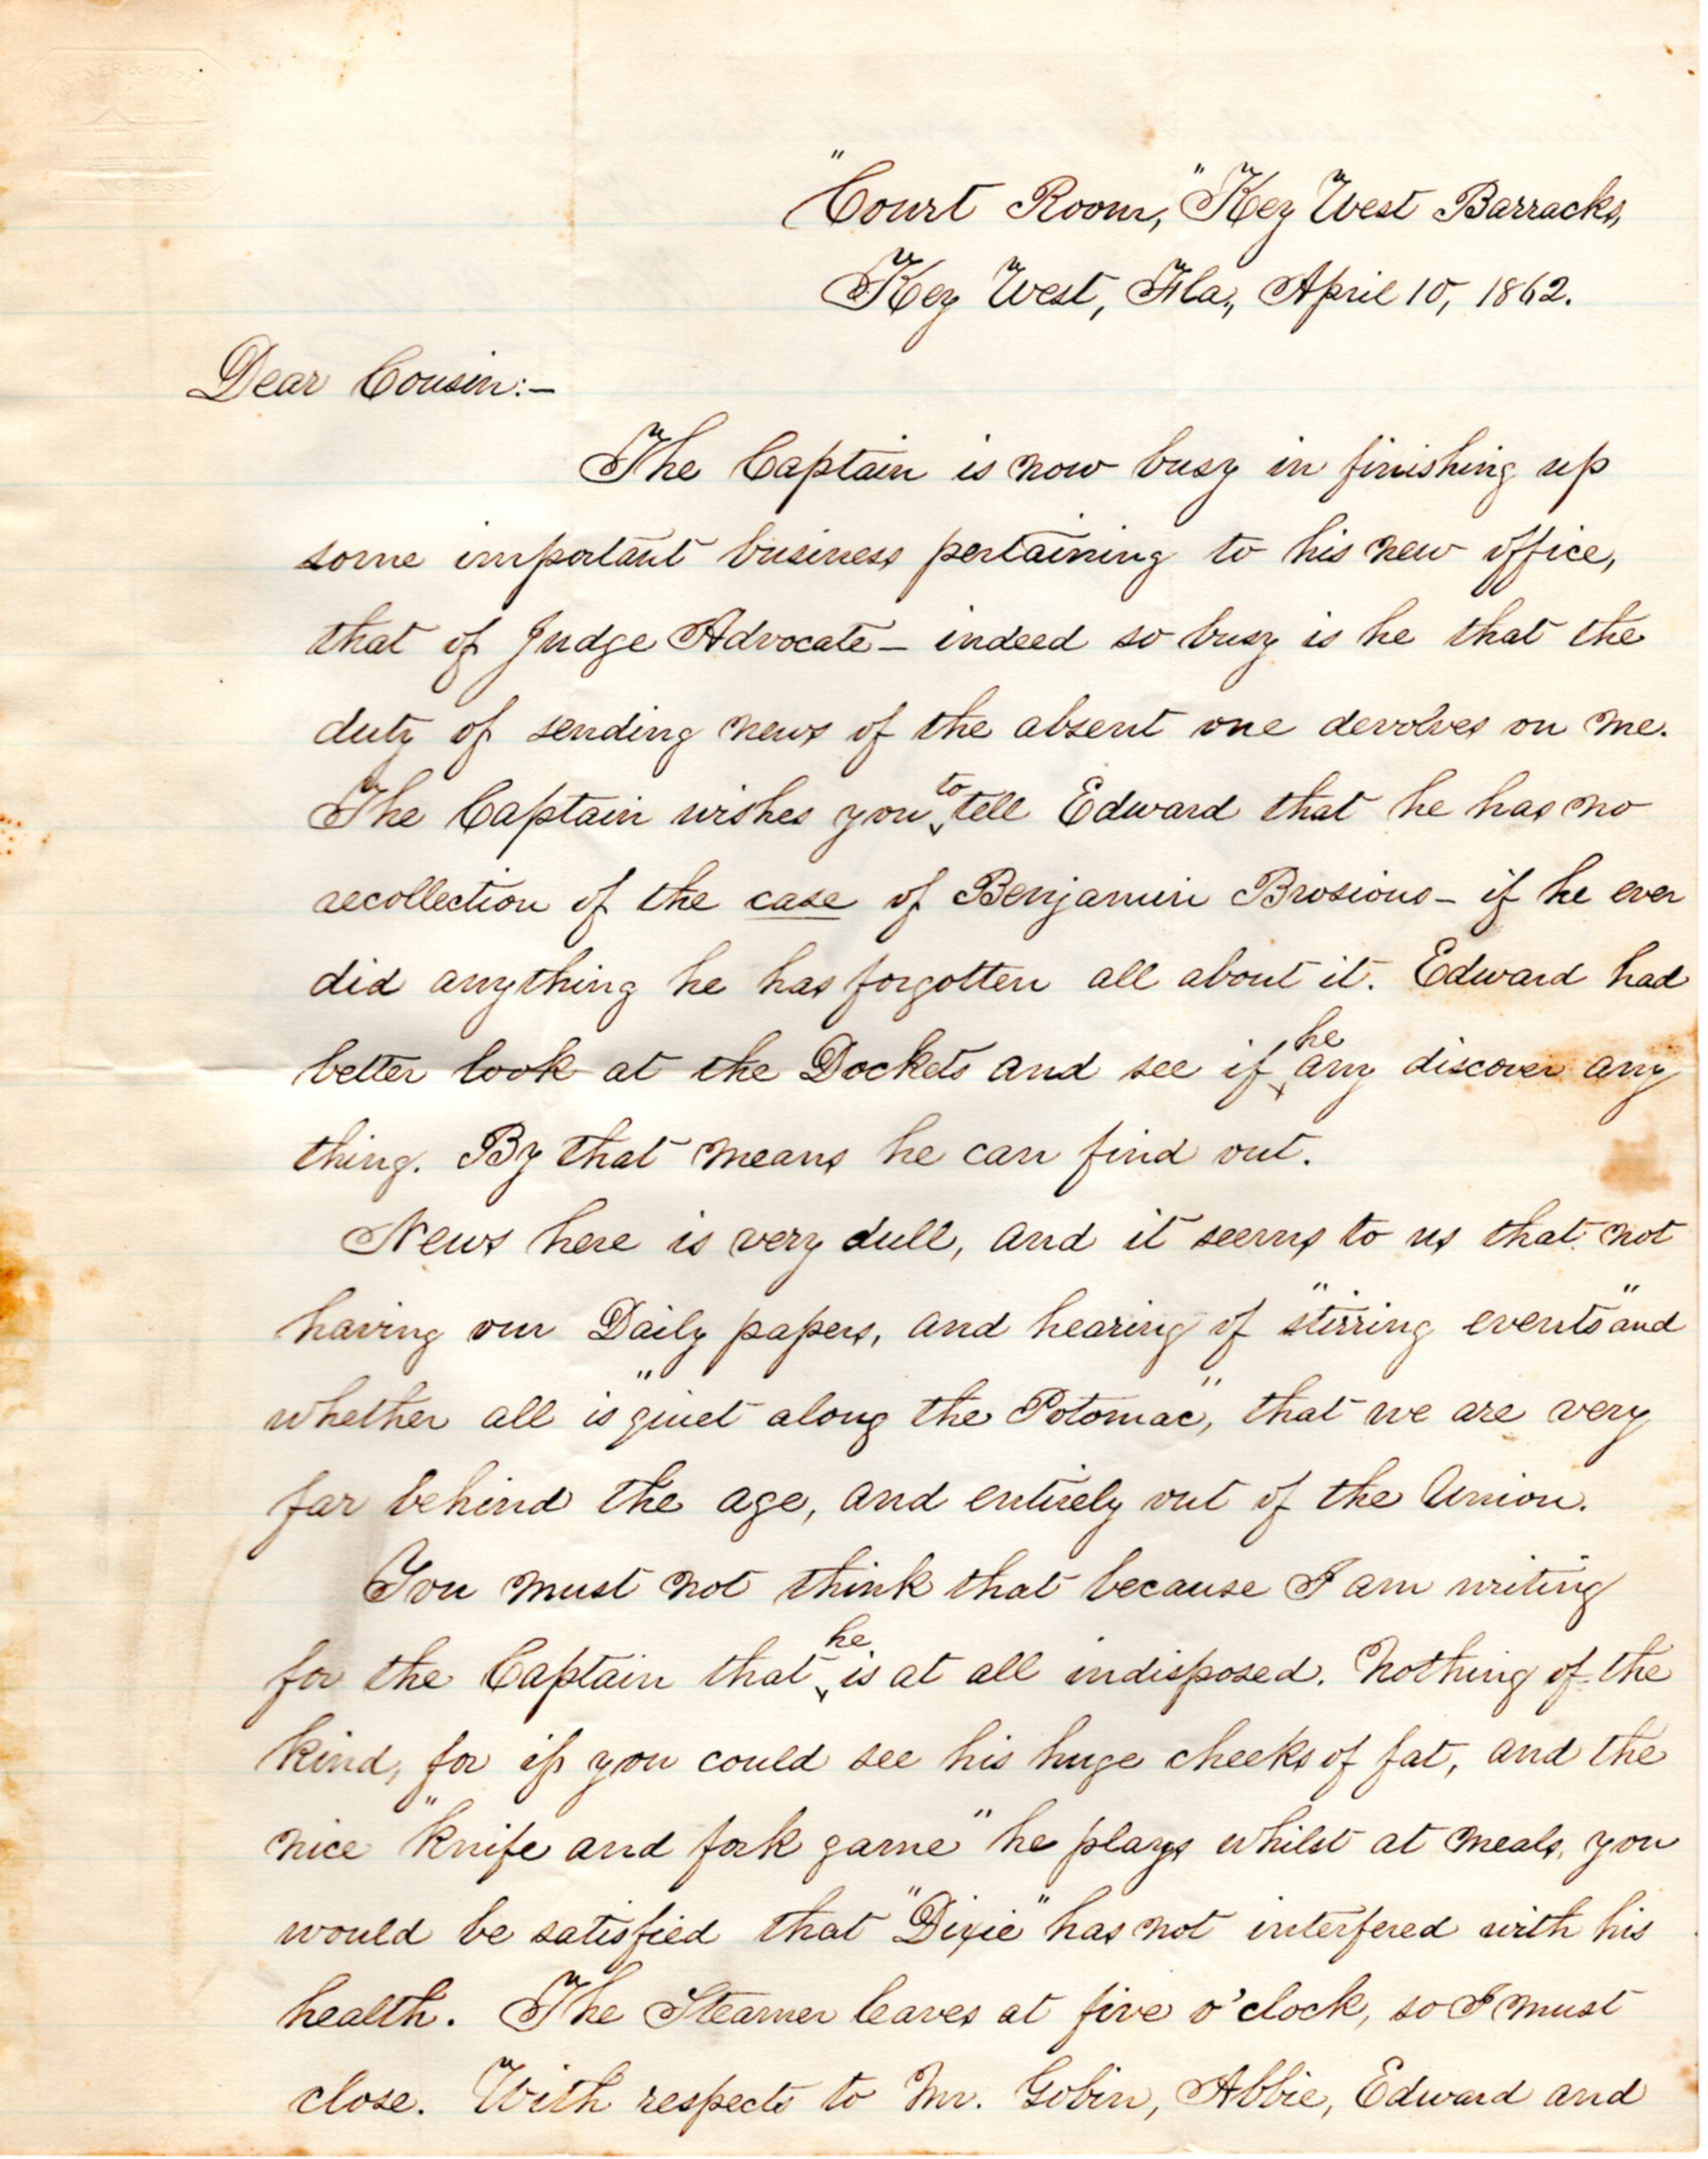 "Court Room," Key West Barracks,
Key West, Fla., April 10, 1862.
Dear Cousin:—
The Captain is now busy in finishing up
some important business pertaining to his new office,
that of Judge Advocate — indeed so busy is he that the
duty of sending news of the absent one devolves on me.
The Captain wishes you to tell Edward that he has no
recollection of the case of Benjamin Brosious — if he ever
did anything he has forgotten all about it. Edward had
better look at the Dockets and see if he any discover any
thing. By that means he can find out.
News here is very dull, and it seems to us that not
having our Daily papers, and hearing of "stirring events" and
whether all is "quiet along the Potomac", that we are very
far behind the age, and entirely out of the Union.
You must not think that because I am writing
for the Captain that he is at all indisposed. Nothing of the
kind, for if you could see his huge cheeks of fat, and the
nice "knife and fork game" he plays whilst at meals, you
would be satisfied that "Dixie" has not interfered with his
health. The Steamer leaves at five o'clock, so I must
close. With respects to Mr. Gobin, Abbie, Edward and